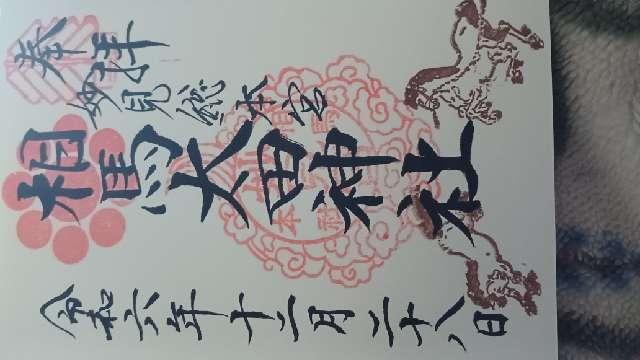 奉拝
妙見総本宮
相馬太田神社
令和六年十二月二十八日